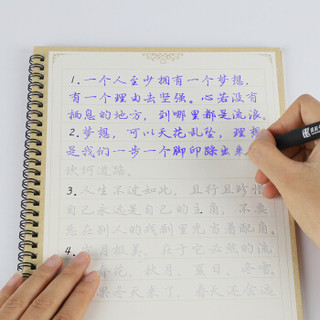 1.一个人至少拥有一个梦想，
有一个理由去坚强。心若没有
栖息的地方，到哪里都是流浪。
2.梦想，可以天花乱坠，理想
是我们一步一个脚印踩出来
坎坷道路。
3.人生不过如此，且行且珍惜
自己永远是自己的主角，不要
总在别人的戏剧里充当着配角。
4.岁月极美，在于它必然的流
春花，秋月，夏日，冬雪
果冬天来了，春天还会远